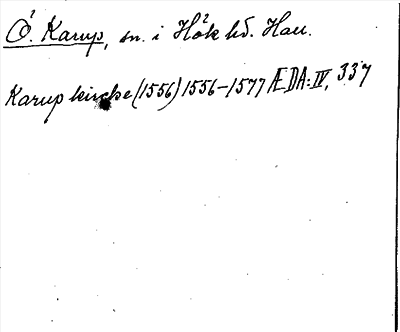 Ö. Karup, sn. i Hök hd. Hall.
Karup kirche (1556) 1556–1577 ÆDA: IV, 337